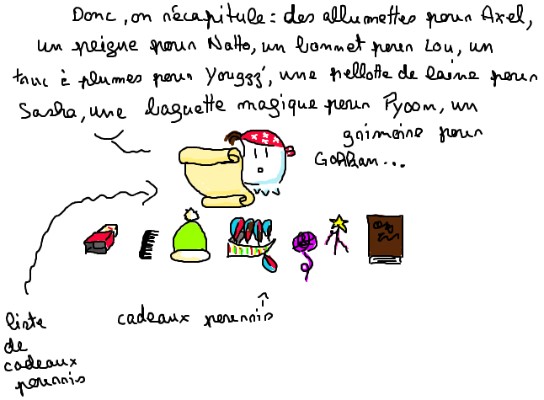 Donc, on récapitule : des allumettes pour Axel,
un peigne pour Natto, un bonnet pour Lou, un
truc à plumes pour Youggz', une pellotte de laine pour
Sasha, une baguette magique pour Pyoon, un
grimoire pour
Gorkan...
cadeaux pourris
liste
de
cadeaux
pourris